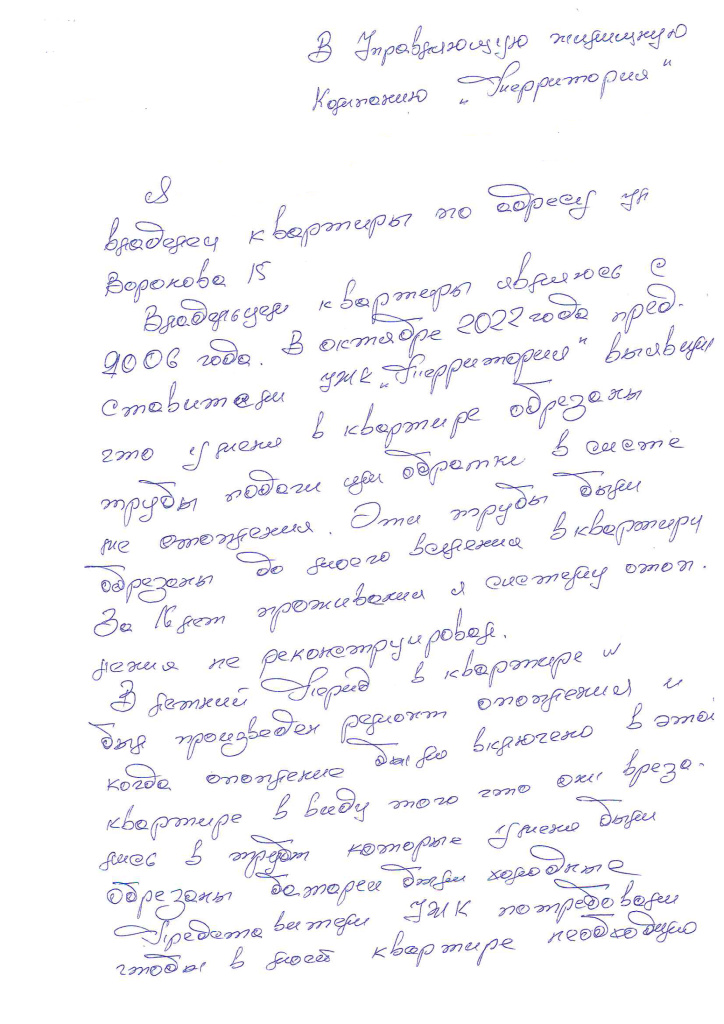 В Управляющую жилищную
Компанию „Территория"
Я
владелец квартиры по адресу ул
Воронова 15
Владельцем квартиры являюсь с
2006 года. В октябре 2022 года пред-
ставители УЖК „Территория" выявили
что у меня в квартире обрезаны
трубы подачи или обратки в систе
ме отопления. Эти трубы были
обрезаны до моего вселения в квартиру
За 16 лет проживания я систему отоп-
ления не реконструировал.
В летний период в квартире №
был произведен ремонт отопления и
когда отопление было включено в этой
квартире в виду того что они вреза-
лись в трубы которые у меня были
обрезаны батареи были холодные
Представители УЖК потребовали
чтобы в моей квартире необходимо